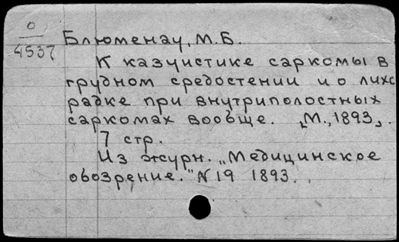 0
4537
Блюменау, М.Б.
К казуистике саркомы в
грудном средостении и о лихо
радке при внутриполостных
саркомах вообще. „М., 1893„.
7 стр.
Из журн. „Медицинское
обозрение." N19 1893.